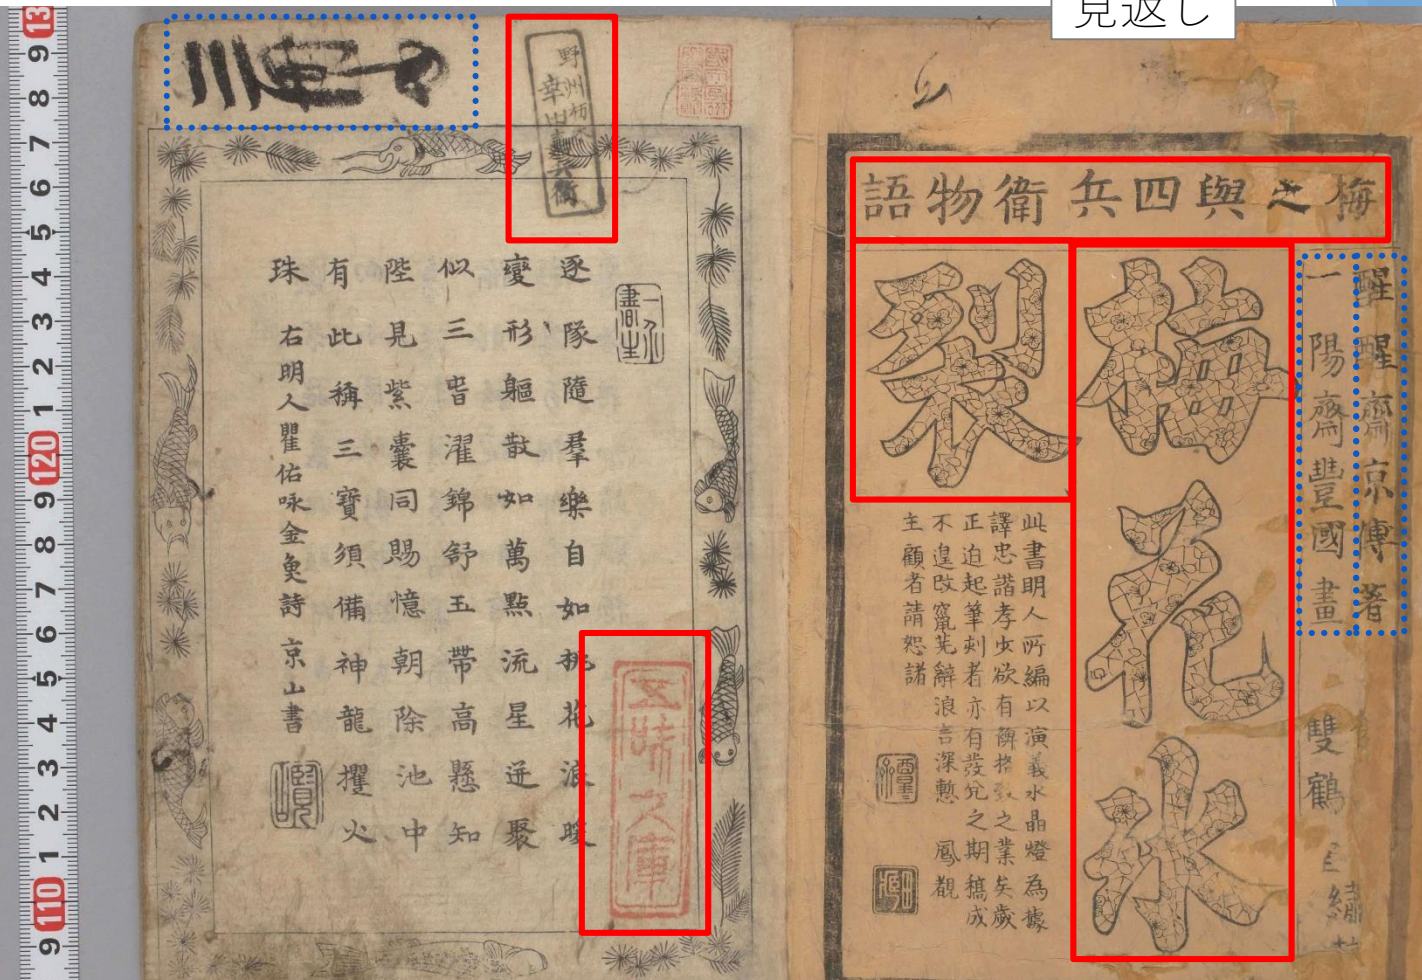 見返し
梅之與四兵衛物語
醒醒齋京傳著
一陽齋豐國畫
雙鶴
梅花氷
裂
此書明人所編以演義水晶燈為據
譯忠諧孝虫欲有
之業矣歲
正迫起筆刻者亦有發兌之期稿成
不遑改竄芜辭浪言深慙 鳳觀
主顧者請恕諸
野州栃木
幸山
兵衛
逐隊隨羣樂自如桃花浪暖
變形軀散如萬點流星迸聚
似三峕濯錦舒玉帶高懸知
陛見紫囊同賜憶朝除池中
有此稱三寶須備神龍攫火
珠 右明人瞿佑咏金魚詩 京山書
五味文庫
13
9
8
7
6
5
4
3
2
1
120
9
8
7
6
5
4
3
2
1
110
9